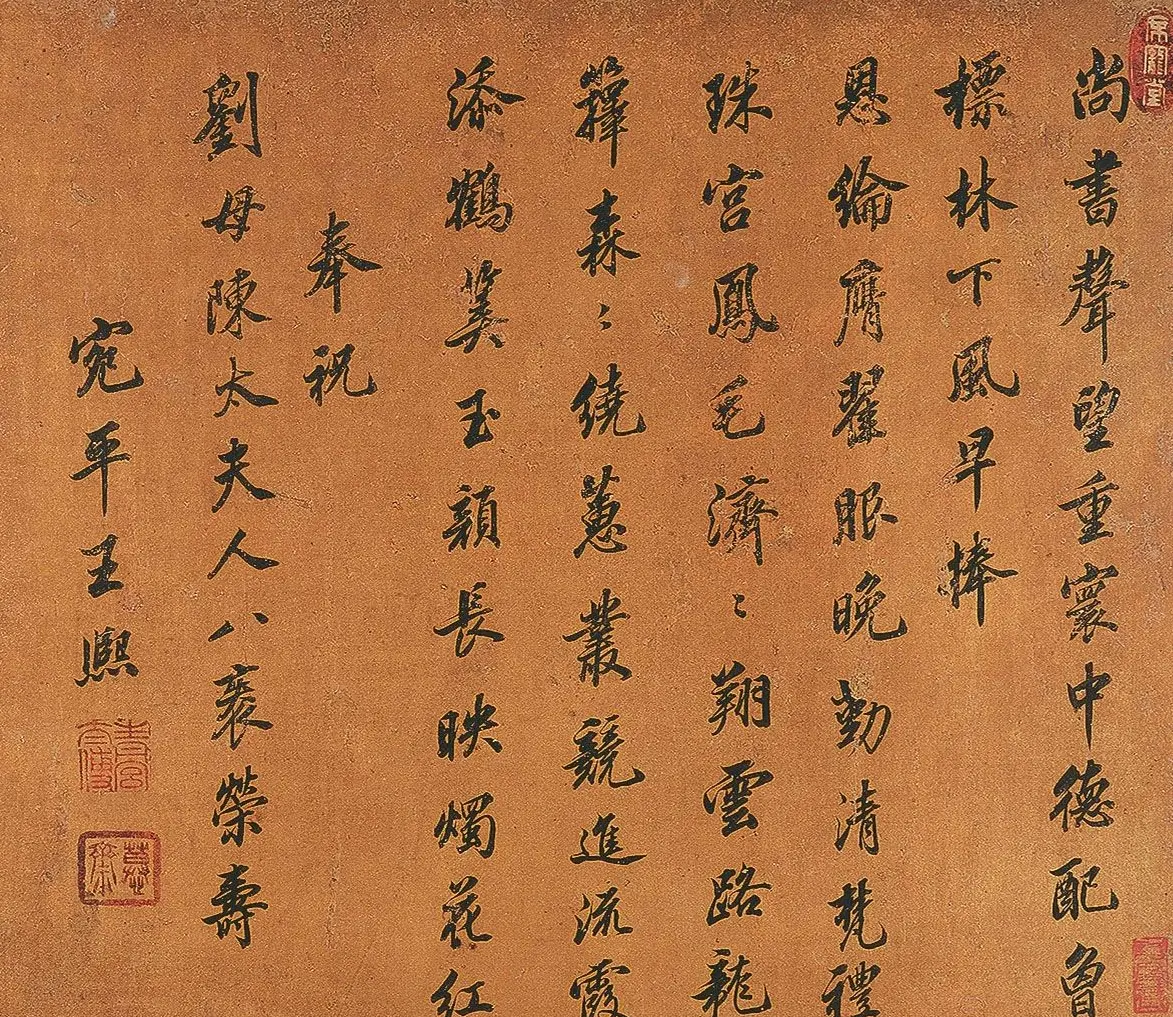 尚書聲望重寰中德配魯
標林下風早捧
恩綸膺翟眼晚勤清梵禮
珠宮鳳毛濟〻翔雲路龍
籜森〻繞蕙叢競進流霞
添鶴筭玉顏長映燭花紅
奉祝
劉母陳太夫人八袠榮壽
宛平王熙
慕齋